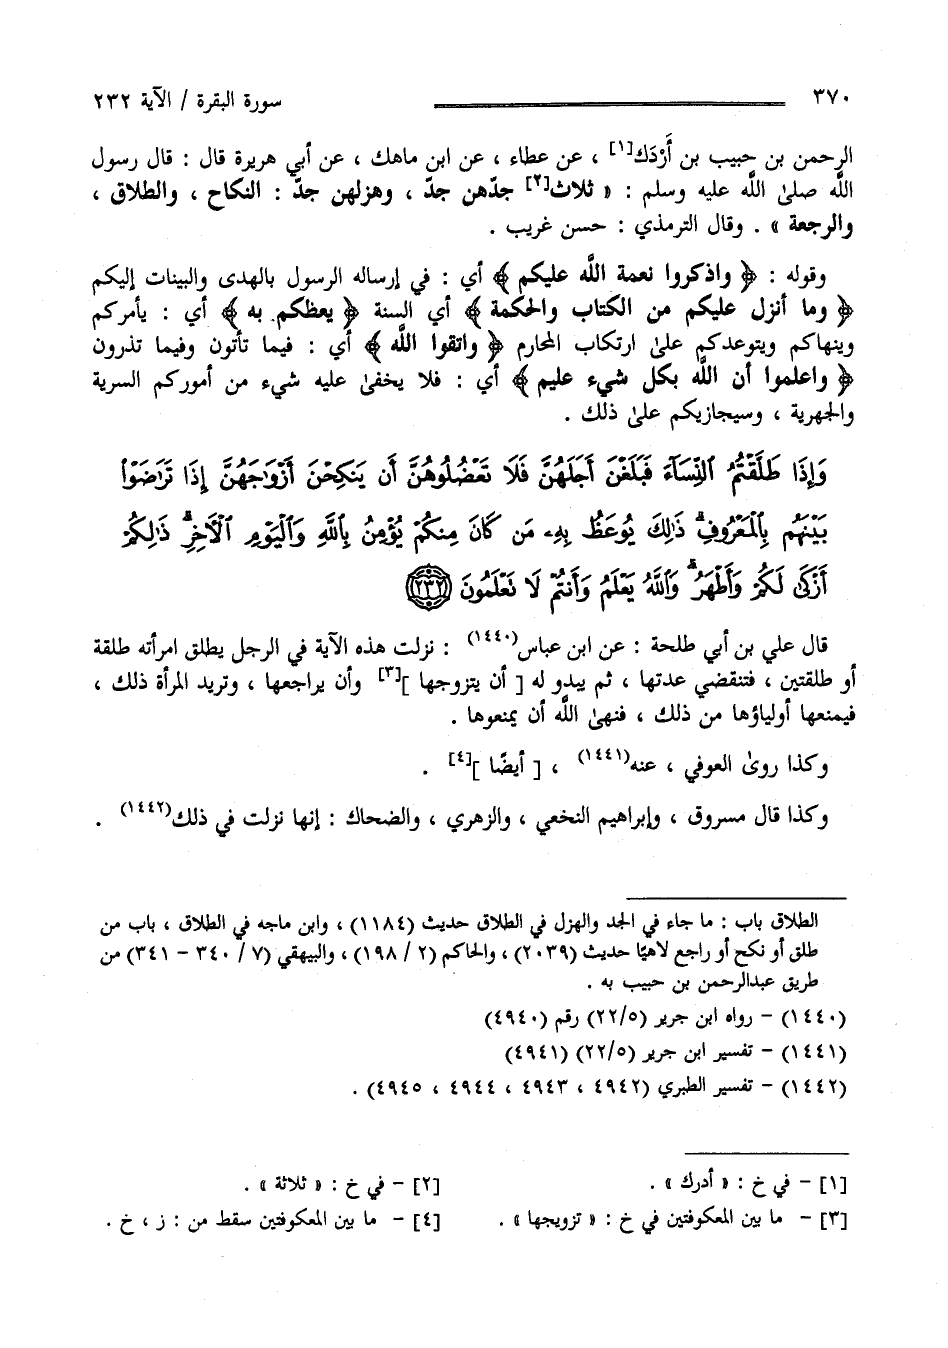 ٣٧٠ سورة البقرة / الآية ٢٣٢
الرحمن بن حبيب بن أَرْدَك[١] ، عن عطاء ، عن ابن ماهك ، عن أبي هريرة قال : قال رسول
اللَّه صلىٰ اللَّه عليه وسلم : « ثلاث[٢] جدّهن جدّ ، وهزلهن جدّ : النكاح ، والطلاق ،
والرجعة » . وقال الترمذي : حسن غريب .
وقوله : ﴿ واذكروا نعمة اللَّه عليكم ﴾ أي : في إرساله الرسول بالهدى والبينات إليكم
﴿ وما أنزل عليكم من الكتاب والحكمة ﴾ أي السنة ﴿ يعظكم به ﴾ أي : يأمركم
وينهاكم ويتوعدكم علىٰ ارتكاب المحارم ﴿ واتقوا اللَّه ﴾ أي : فيما تأتون وفيما تذرون
﴿ واعلموا أن اللَّه بكل شيء عليم ﴾ أي : فلا يخفىٰ عليه شيء من أموركم السرية
والجهرية ، وسيجازيكم علىٰ ذلك .
وَإِذَا طَلَّقْتُمُ ٱلنِّسَآءَ فَبَلَغْنَ أَجَلَهُنَّ فَلَا تَعْضُلُوهُنَّ أَن يَنكِحْنَ أَزْوَٰجَهُنَّ إِذَا تَرَٰضَوْا۟
بَيْنَهُم بِٱلْمَعْرُوفِ ۗ ذَٰلِكَ يُوعَظُ بِهِۦ مَن كَانَ مِنكُمْ يُؤْمِنُ بِٱللَّهِ وَٱلْيَوْمِ ٱلْأَخِرِ ۗ ذَٰلِكُمْ
أَزْكَىٰ لَكُمْ وَأَطْهَرُ ۗ وَٱللَّهُ يَعْلَمُ وَأَنتُمْ لَا تَعْلَمُونَ ﴿٢٣٢﴾
قال علي بن أبي طلحة : عن ابن عباس(١٤٤٠) : نزلت هذه الآية في الرجل يطلق امرأته طلقة
أو طلقتين ، فتنقضي عدتها ، ثم يبدو له [ أن يتزوجها ][٣] وأن يراجعها ، وتريد المرأة ذلك ،
فيمنعها أولياؤها من ذلك ، فنهىٰ اللَّه أن يمنعوها .
وكذا روىٰ العوفي ، عنه(١٤٤١) ، [ أيضًا ][٤] .
وكذا قال مسروق ، وإبراهيم النخعي ، والزهري ، والضحاك : إنها نزلت في ذلك(١٤٤٢) .
الطلاق باب : ما جاء في الجد والهزل في الطلاق حديث (١١٨٤) ، وابن ماجه في الطلاق ، باب من
طلق أو نكح أو راجع لاهيًا حديث (٢٠٣٩) ، والحاكم (٢ / ١٩٨) ، والبيهقي (٧ / ٣٤٠ – ٣٤١) من
طريق عبدالرحمن بن حبيب به .
(١٤٤٠) – رواه ابن جرير (٢٢/٥) رقم (٤٩٤٠)
(١٤٤١) – تفسير ابن جرير (٢٢/٥) (٤٩٤١)
(١٤٤٢) – تفسير الطبري (٤٩٤٢ ، ٤٩٤٣ ، ٤٩٤٤ ، ٤٩٤٥) .
[١] – في خ : « أدرك » . [٢] – في خ : « ثلاثة » .
[٣] – ما بين المعكوفتين في خ : « تزويجها » . [٤] – ما بين المعكوفتين سقط من : ز ، خ .